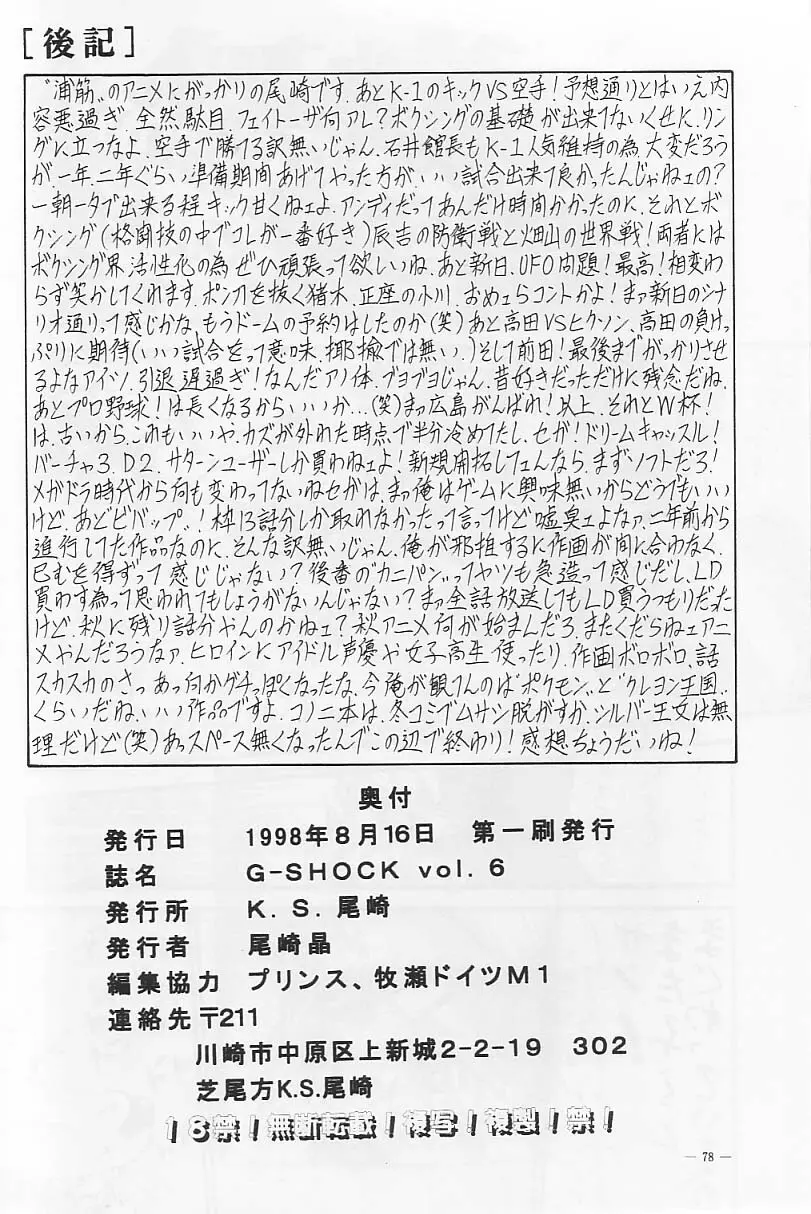 [後記]
“浦筋”のアニメにがっかりの尾崎です.あとK-1のキックVS空手!予想通りとはいえ内
容悪過ぎ.全然駄目.フェイトーザ何アレ?ボクシングの基礎が出来てないくせに.リン
グに立つなよ.空手で勝てる訳無いじゃん.石井館長もK-1人気維持の為.大変だろう
が.一年.二年ぐらい準備期間あげてやった方がいい試合出来て良かったんじゃねェの?
一朝一夕で出来る程キック甘くねェよ.アンディだってあんだけ時間かかったのに.それとボ
クシング(格闘技の中でコレが一番好き)辰吉の防衛戦と畑山の世界戦!両者には
ボクシング界活性化の為ぜひ頑張って欲しいね.あと新日.UFO問題!最高!相変わ
らず笑かしてくれます.ポン刀を抜く猪木.正座の小川.おめェらコントかよ!まァ新日のシナ
リオ通りって感じかな.もうドームの予約はしたのか(笑)あと高田VSヒクソン.高田の負けっ
ぷりに期待(いい試合をって意味.揶揄では無い.)そして前田!最後までがっかりさせ
るよなアイツ.引退遅過ぎ!なんだアノ体.ブヨブヨじゃん.昔好きだっただけに残念だね.
あとプロ野球!は長くなるからいいか...(笑)まっ広島がんばれ!以上.それとW杯!
は.古いから.これもいいや.カズが外れた時点で半分冷めてたし.セガ!ドリームキャッスル!
バーチャ3.D2.サターンユーザーしか買わねェよ!新規開拓してェんなら.まずソフトだろ!
メガドラ時代から何も変わってないねセガは.まっ俺はゲームに興味無いからどうでもいい
けど.あとビバップ!枠13話分しか取れなかったって言ってけど嘘臭ェよなァ.二年前から
進行してた作品なのに.そんな訳無いじゃん.俺が邪推するに作画が間に合わなく.
已むを得ずって感じじゃない?後番の“カニパン”ってヤツも急造って感じだし.LD
買わす為って思われてもしょうがないんじゃない?まっ全話放送してもLD買うつもりだった
けど.秋に残り話分やんのかねェ?秋アニメ何が始まんだろ.またくだらねェアニ
メやんだろうなァ.ヒロインにアイドル声優や女子高生使ったり.作画ボロボロ.話
スカスカのさっ.あっ何かグチっぽくなったな.今俺が観てんのは“ポケモン”と“クレヨン王国”
くらいだね.いい作品ですよ.コノ二本は.冬コミでムサシ脱がすか.シルバー王女は無
理だけど(笑)あっスペース無くなったんでこの辺で終わり!感想ちょうだいね!
奥付
発行日 1998年8月16日 第一刷発行
誌名 G-SHOCK vol.6
発行所 K.S.尾崎
発行者 尾崎晶
編集協力 プリンス、牧瀬ドイツM1
連絡先〒211
川崎市中原区上新城2-2-19 302
芝尾方K.S.尾崎
18禁!無断転載!複写!複製!禁!
— 78 —